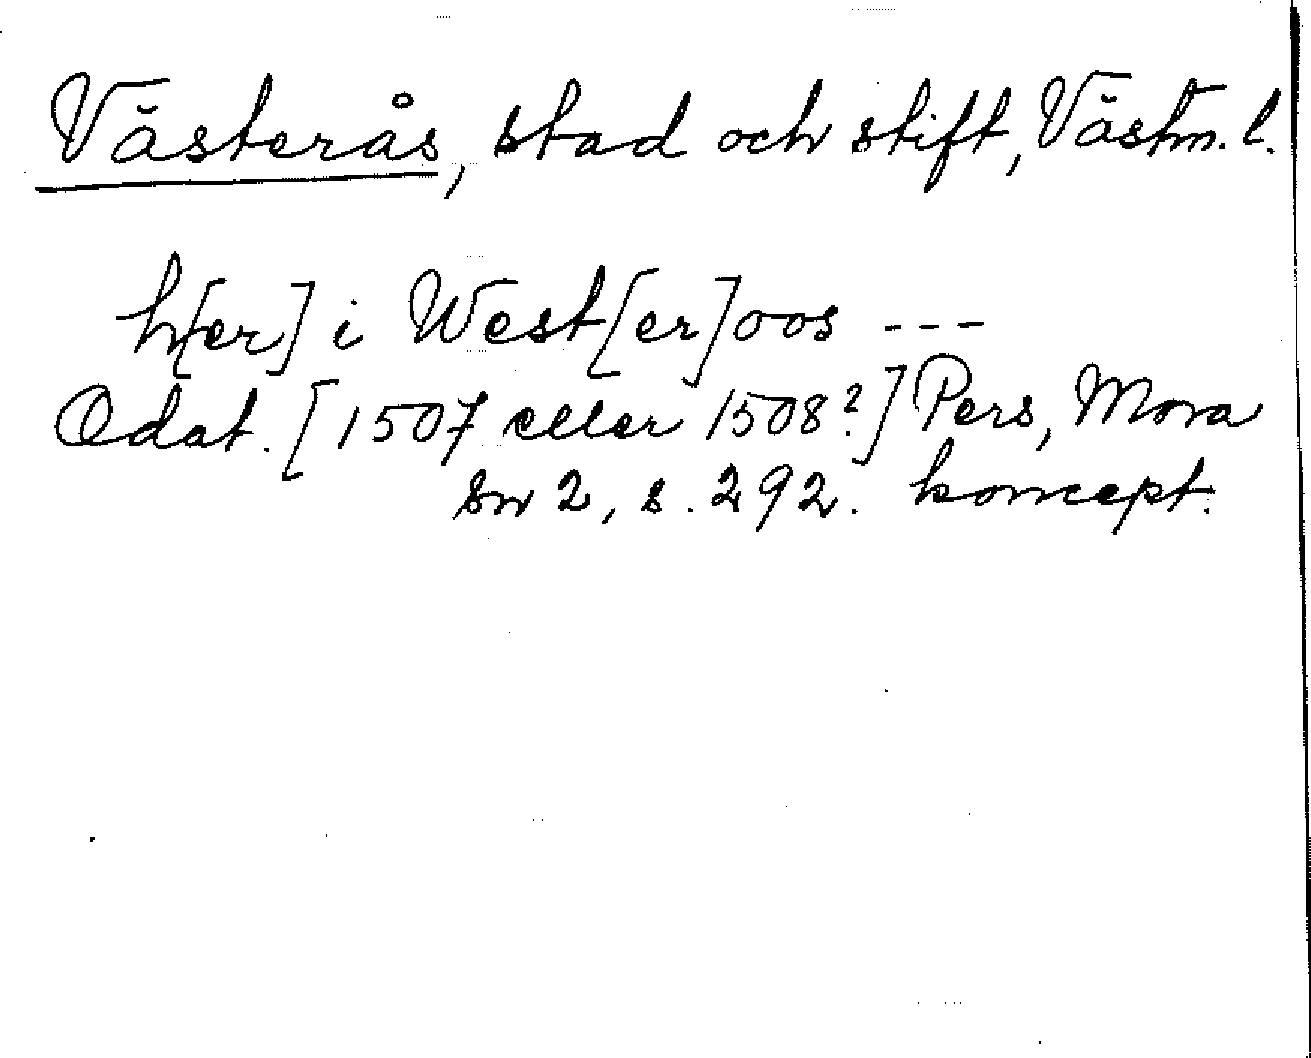 Västerås, stad och stift, Västm. l.
h[er] i West[er]oos ---
Odat. [1507 eller 1508?] Pers, Mora
sn 2, s. 292. koncept.